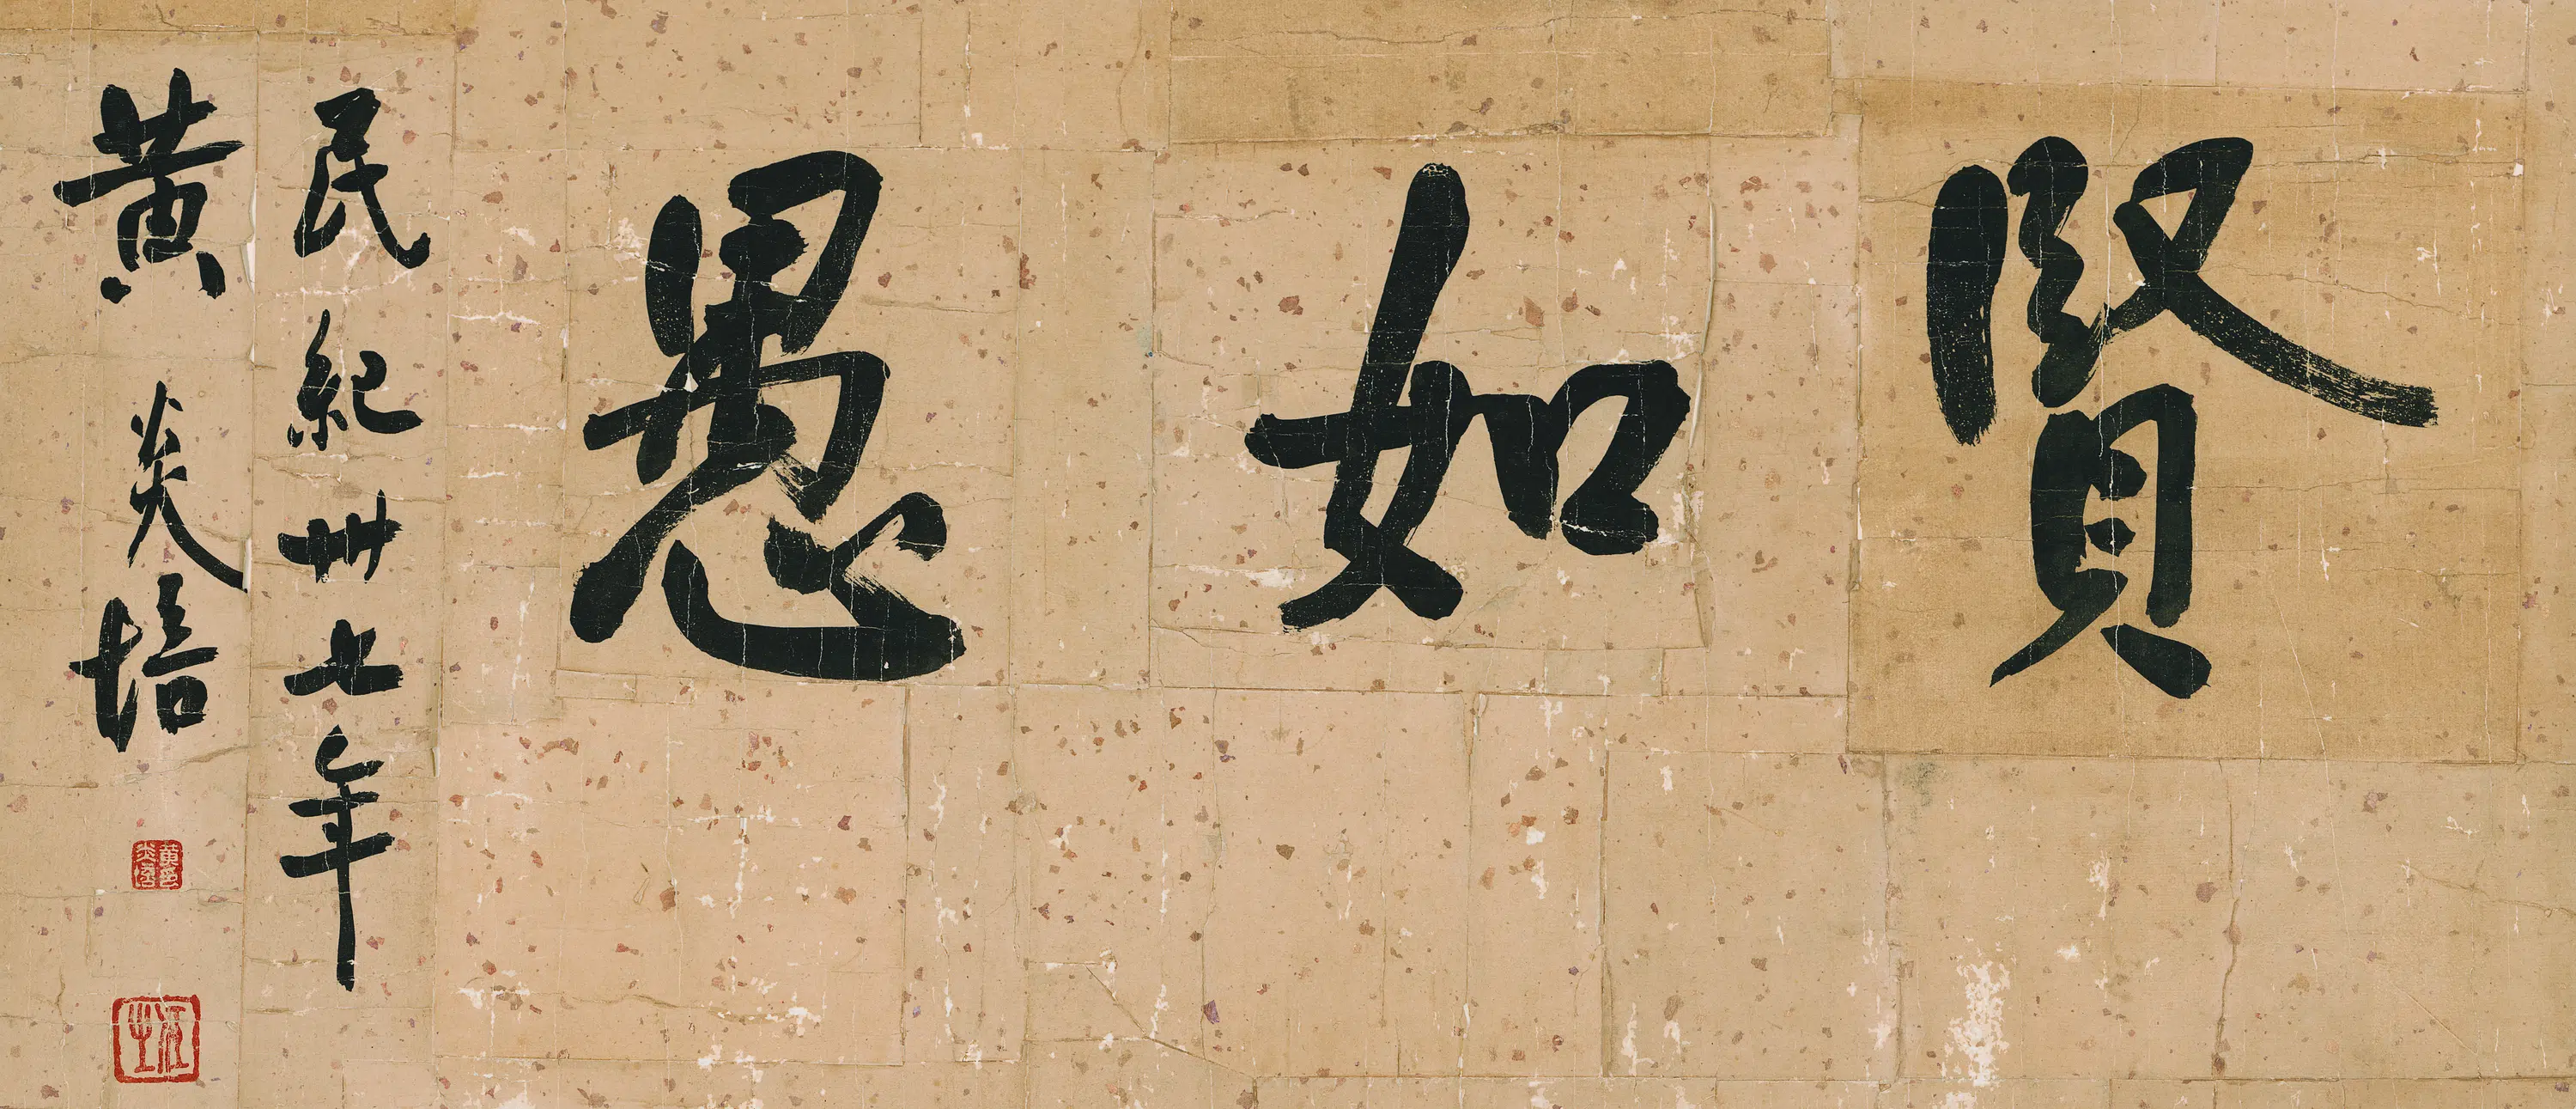 賢如愚
民紀卅七年
黄炎培
黄炎培印